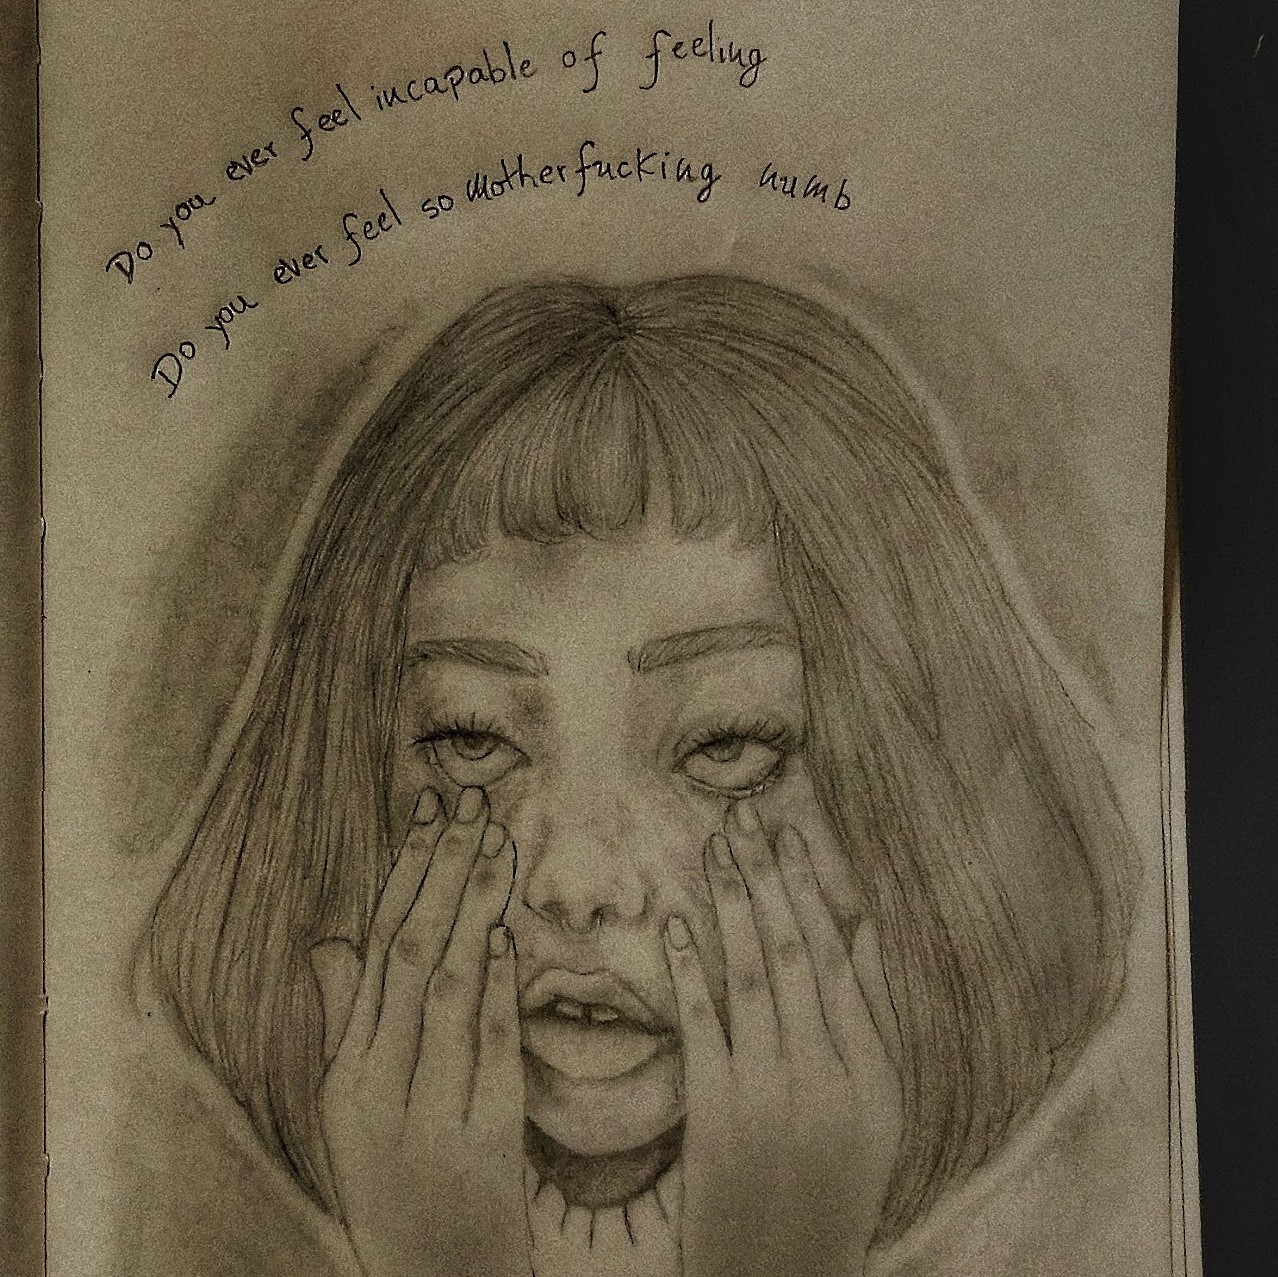 Do you ever feel incapable of feeling
Do you ever feel so motherfucking numb